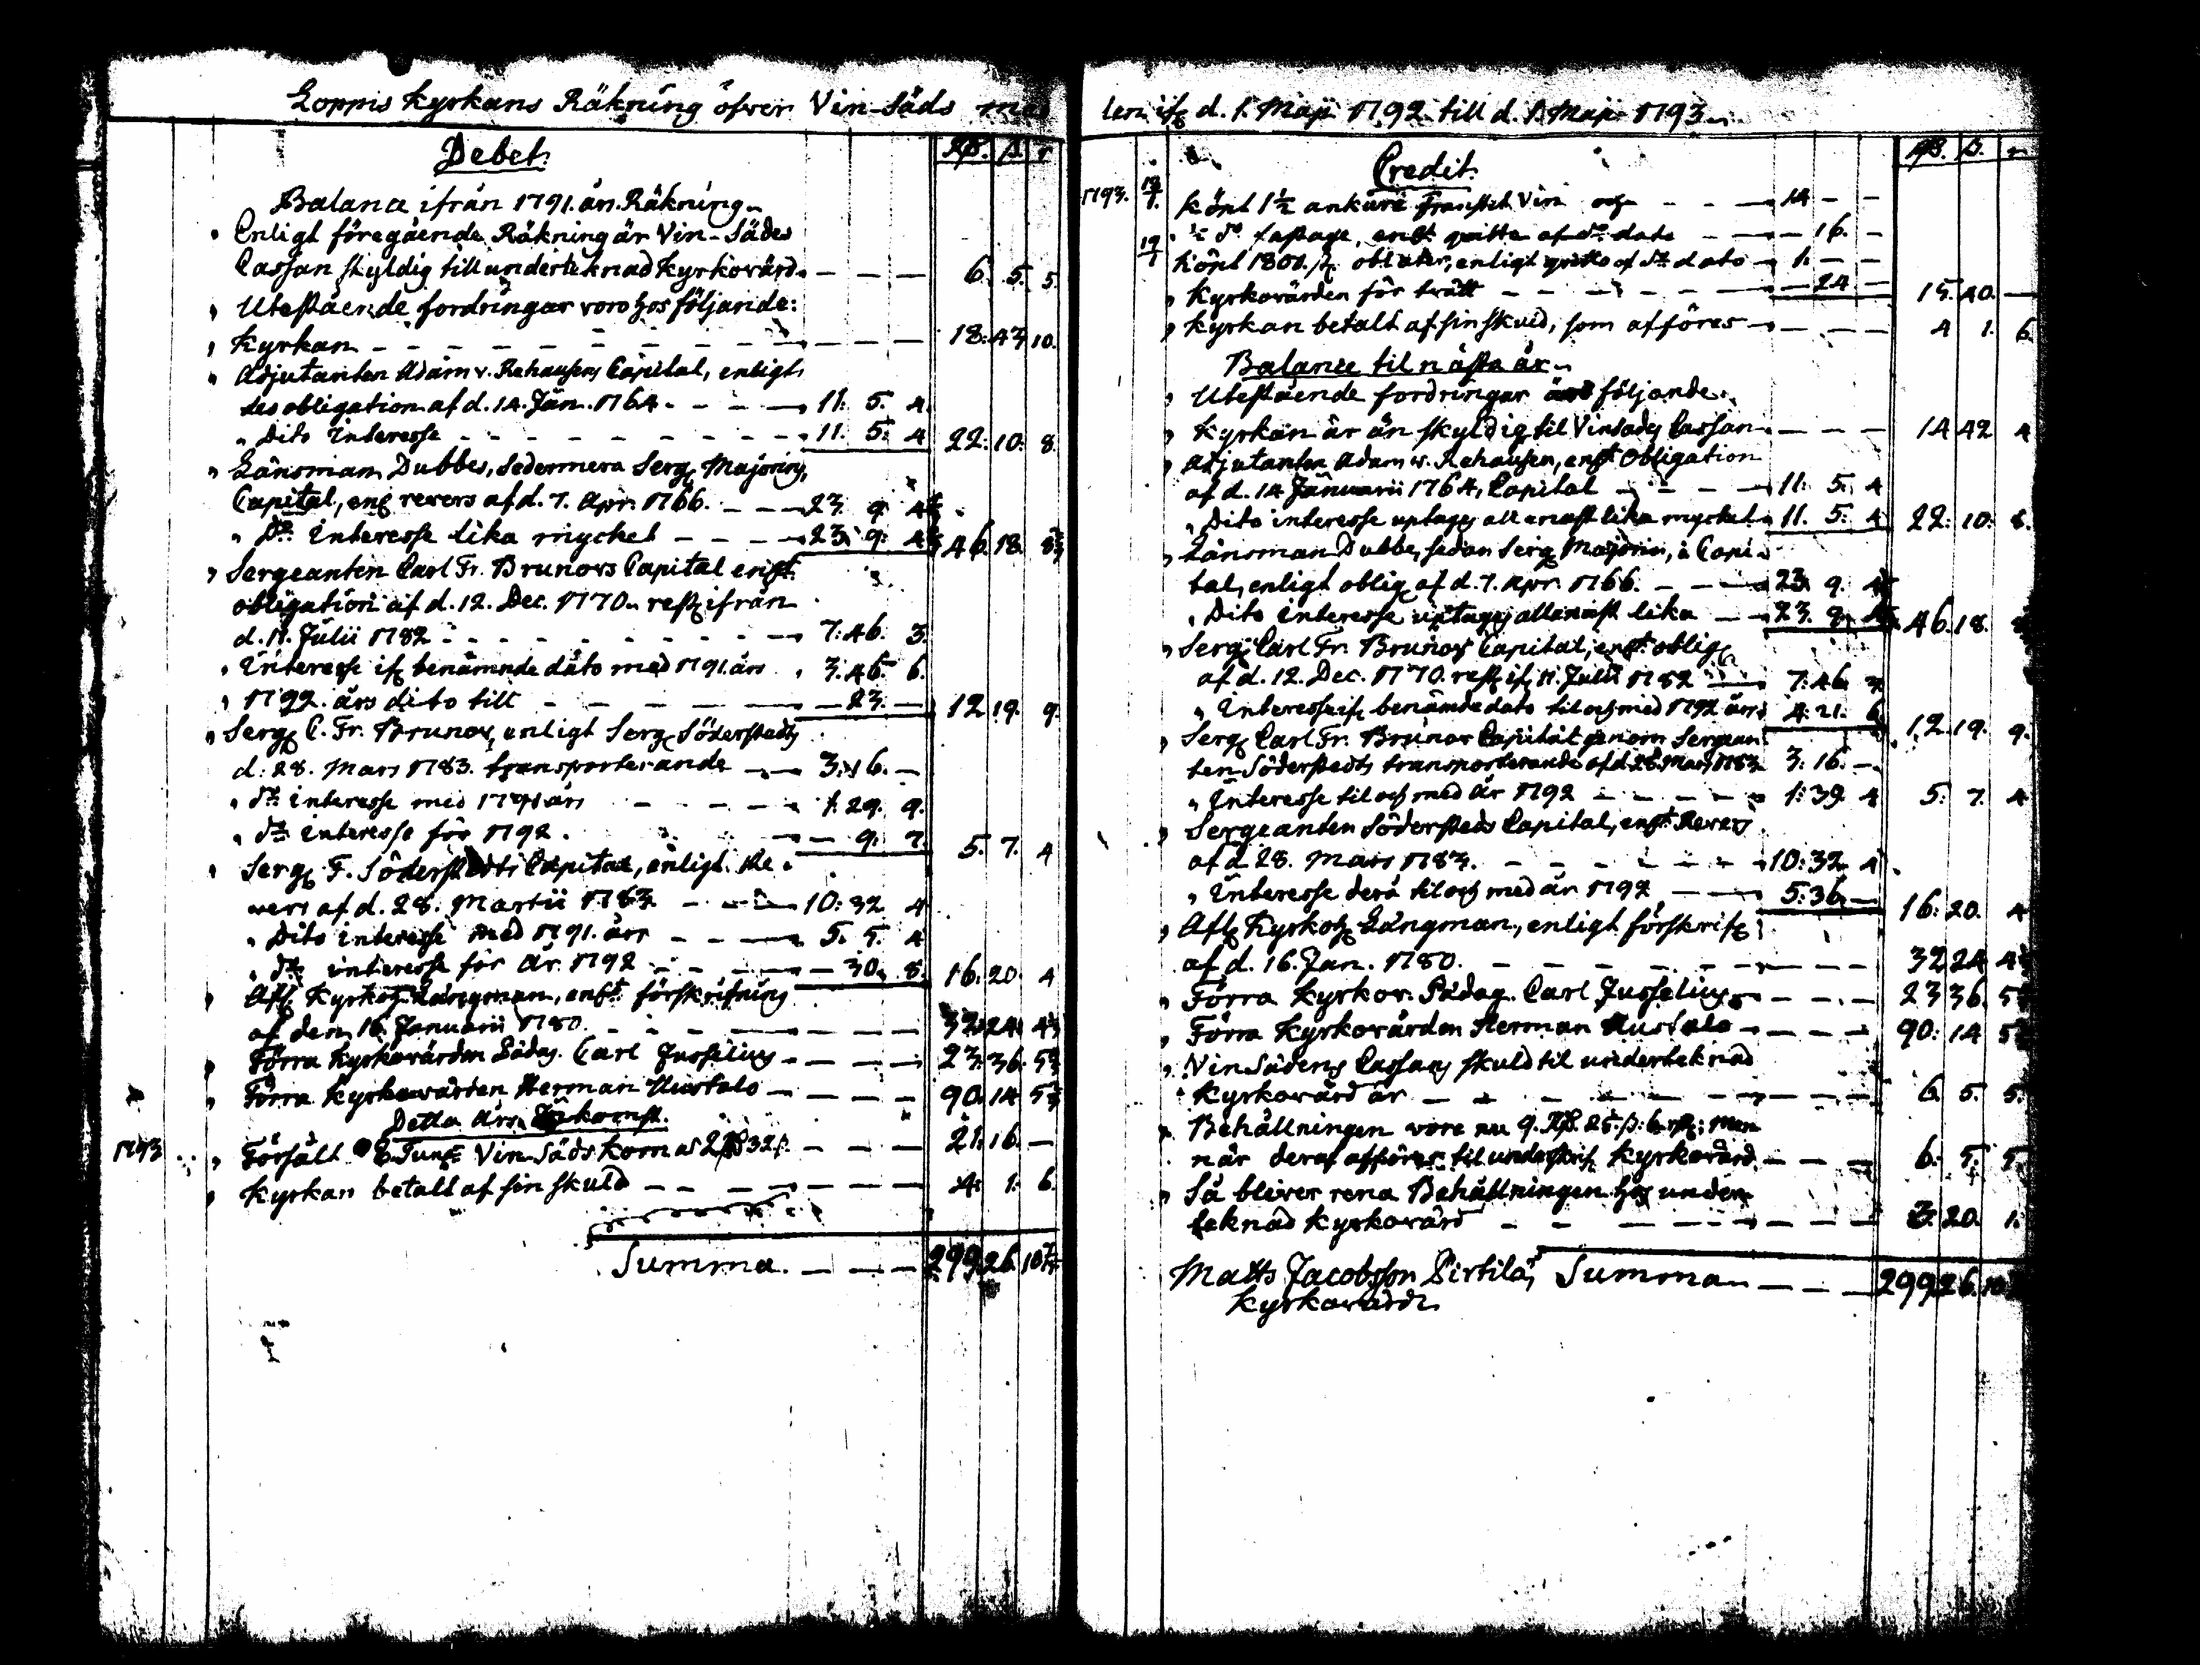 Loppis Kyrkans Räkning öfver Vin-Säds med
Debet.
Rd. ß. r
Balance ifrån 1791. års Räkning.
Enligt föregående Räkning är Vin-Sädes
Cassan skyldig till underteknad Kyrkovärd. — — — 6. 5. 5.
Utestående fordringar voro hos följande:
Kyrkan — — — 18. 43. 10.
Adjutanten Adam v. Rehausens Capital, enligt
des obligation af d. 14. Jan. 1764. — — 11. 5. 4.
Dito Interesse — — — 11. 5. 4 22. 10. 8.
Länsman Dubbes, sedermera Serg. Majorins,
Capital, enl. revers af d. 7. Apr. 1766. — — 23. 9. 4
Do. Interesse lika mycket — — 23. 9. 4 46. 18. 8
Sergeanten Carl Fr. Brunows Capital enligt
obligation af d. 12. Dec. 1770. rest. ifrån
d. 11. Julii 1782 — — 7. 46. 3.
Interesse if. benämnde dato med 1791. års 3. 46. 6.
1792. års dito till — — — 23. — 12 19. 9.
Serg. C. Fr. Brunow, enligt Serg. Söderstedts
d. 28. Mars 1783. transporterande — 3. 16. —
do. interesse med 1791 års — — 1. 29. 9.
do. interesse för 1792. — — 9. 7. 5. 7. 4
Serg. F. Söderstedts Capital, enligt Re
vers af d. 28. Martii 1783 — — 10. 32 4
Dito interesse med 1791. års — — 5. 5. 4
do. interesse för år 1792 — — 30. 8. 16. 20. 4
Afl. Kyrkoh. Långman, enligt förskrifning
af den 16. Januarii 1780. — — — 32. 24. 4
Förra Kyrkovärden Pädag. Carl Jusselius — — — 23. 36. 5
Förra Kyrkovärden Herman Uustalo — — — 90. 14 5
Detta års Inkomst.
1793 Försålt 8 Tunr Vin-Säds Korn a 2 Rd 32 ß. — — — 21. 16. —
Kyrkan betalt af sin skuld — — — 4. 1. 6.
Summa. — — — 299 26. 10
len if. d. 1. Maji 1792 till d. 1. Maji 1793.
Credit.
Rd. ß. r
1793. Köpt 1½ ankare Franskt Vin — — 14 — —
½ do. fastage, enligt qvitto af do. dato — — 16. —
Köpt 1800. st. oblater, enligt qvitto af do. dato — 1. — —
Kyrkovärden för tvätt — — — 24 — 15. 40. —
Kyrkan betalt af sin skuld, som afföres — — — 4 1. 6.
Balance til nästa år.
Utestående fordringar äro följande.
Kyrkan är än skyldig til Vinsäds Cassan — — — 14 42 4
Adjutanten Adam v. Rehausen, enligt Obligation
af d. 14 Januarii 1764, Capital — — 11. 5. 4
Dito interesse uptages allenast lika mycket 11. 5. 4 22. 10. 8.
Länsman Dubbe, sedan Serg. Majorin, i Capi
tal, enligt oblig. af d. 7. Apr. 1766. — — 23. 9. 4
Dito interesse uptages allenast lika — 23. 9. 4 46. 18. 8
Serg. Carl Fr. Brunows Capital, enligt oblig.
af d. 12. Dec. 1770. rest. if. 11. Julii 1782 — 7. 46. 3
Interesse if. benämde dato til och med 1792 års 4. 21. 6 12. 19. 9.
Serg. Carl Fr. Brunows Capital genom Sergean
ten Söderstedts transporterande af d. 28. Mars 1783 3. 16. —
Interesse til och med år 1792 — — 1. 39. 4 5. 7. 4
Sergeanten Söderstedts Capital, enligt Revers
af d. 28. Mars 1783. — — 10. 32. 4
Interesse derå til och med år 1792 — — 5. 36. — 16. 20. 4
Afl. Kyrkoh. Långman, enligt förskrif.
af d. 16. Jan. 1780. — — — 32 24 4
Förra Kyrkov. Pädag. Carl Jusselius — — — 23 36. 5
Förra Kyrkovärden Herman Uustalo — — — 90. 14 5
Vin Sädens Cassans skuld til underteknad
Kyrkovärd är — — — 6. 5. 5.
Behållningen vore nu 9. Rd. 25. ß. 6. rst; Men
när deraf afföres til underskrif. Kyrkovärd — — — 6. 5. 5.
Så blifver rena Behållningen hos under
teknad Kyrkovärd — — — 3. 20. 1.
Matts Jacobsson Pirtilä, Summa — — — 299 26. 10
Kyrkovärd